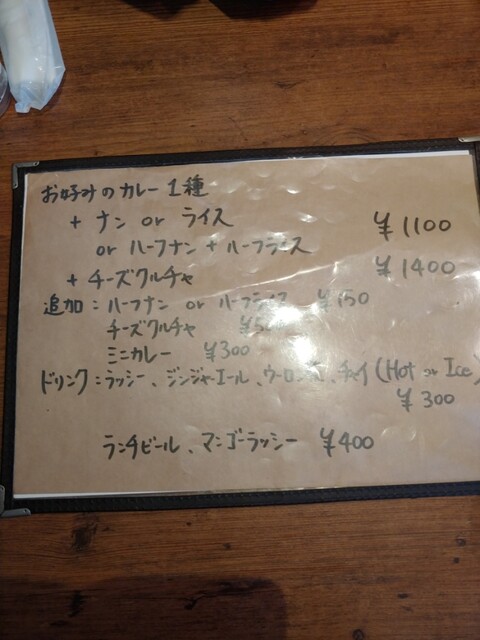 お好みのカレー 1種
+ ナン or ライス ¥1100
or ハーフナン + ハーフライス
+ チーズクルチャ ¥1400
追加: ハーフナン or ハーフライス ¥150
チーズクルチャ
ミニカレー ¥300
ドリンク:ラッシー、ジンジャーエール、ウーロン茶、チャイ(Hot or Ice)
¥300
ランチビール、マンゴーラッシー ¥400